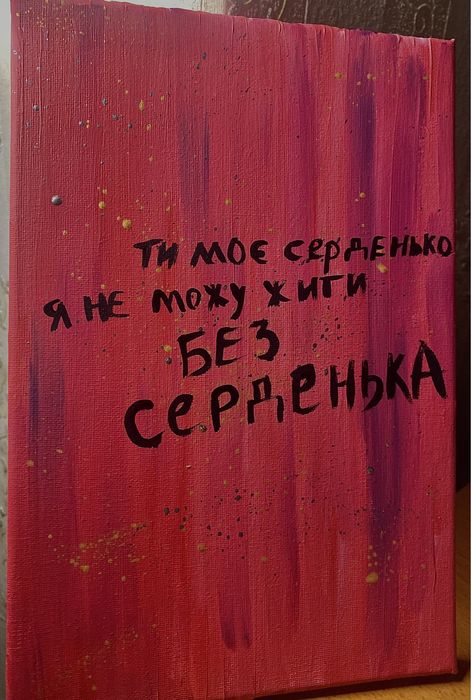 ти моє серденько
я не можу жити
БЕЗ
СеРДеНЬКА